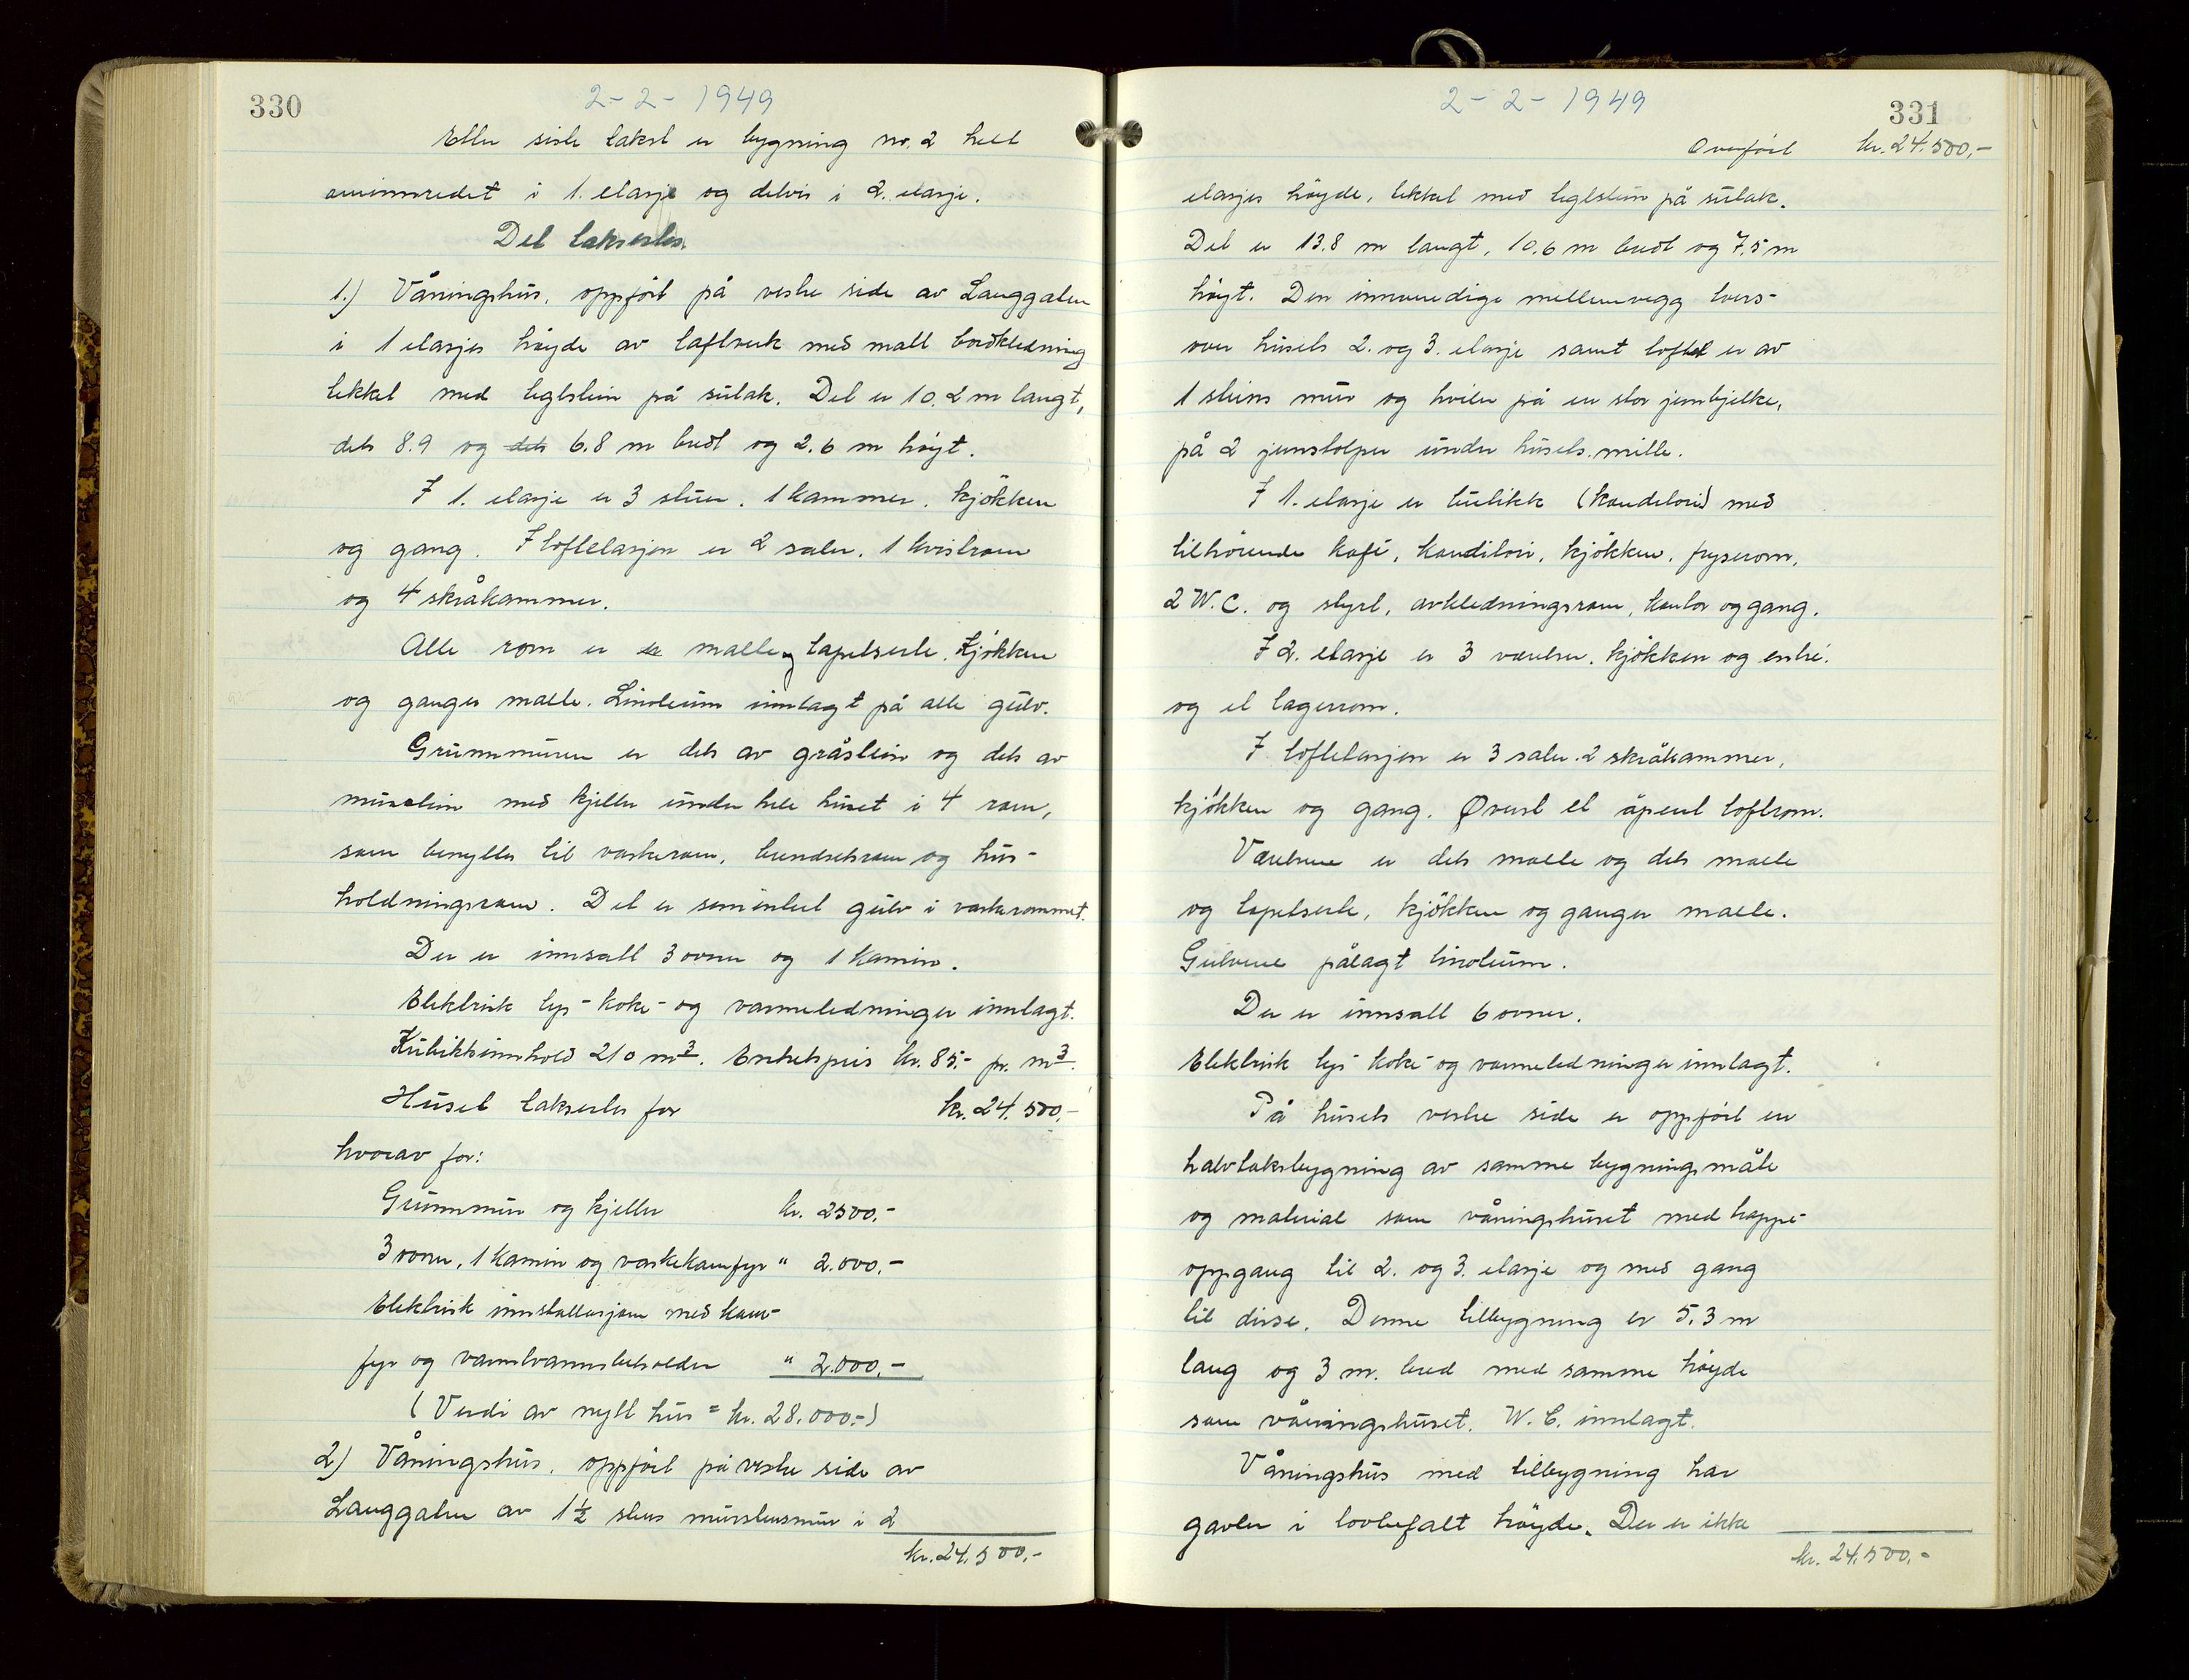 330
2-2-1949
Etter siste takst er bygning nr. 2 helt
ominnredet i 1. etasje og delvis i 2. etasje.
Det takseres.
1.) Våningshus, oppført på vestre side av Langgaten
i 1 etasjes høyde av laftverk med malt bordkledning
tekket med teglstein på sutak. Det er 10.2 m langt,
dels 8.9 og dels 6.8 m bredt og 2.6 m høyt.
I 1. etasje er 3 stuer, 1 kammer, kjøkken
og gang. I loftetasjen er 2 saler, 1 kvistrom
og 4 skråkammer.
Alle rom er er malte og tapetserte. Kjøkken
og ganger malte. Linoleum innlagt på alle gulv.
Grunnmuren er dels av gråstein og dels av
murstein med kjeller under hele huset i 4 rom,
som benyttes til vaskerom, brendselsrom og hus-
holdningsrom. Det er sementert gulv i vaskerommet.
Der er innsatt 3 ovner og 1 kamin.
Elektrisk lys- koke- og varmeledninger innlagt.
Kubikkinnhold 210 m3. Enhetspris kr. 85.- pr. m3.
Huset takseres for kr. 24.500.-
hvorav for:
Grunnmur og kjeller kr. 2500.-
3 ovner, 1 kamin og vaskekomfyr " 2.000.-
Elektrisk innstallasjon med kom-
fyr og varmtvannsbeholder " 2.000.-
(Verdi av nytt hus = kr. 28.000.-)
2) Våningshus, oppført på vestre side av
Langgaten av 1½ stens murstensmur i 2
kr. 24.500.-
2-2-1949
331
Overført kr. 24.500.-
etasjes høyde, tekket med teglstein på sutak.
Det er 13.8 m langt, 10.6 m bredt og 7.5 m
høyt. Den innvendige mellemvegg tvers-
over husets 2. og 3. etasje samt loftet er av
1 steins mur og hviler på en stor jernbjelke,
på 2 jernstolper under husets midte.
I 1. etasje er butikk (konditori) med
tilhørende kafé, konditori, kjøkken, fryserom,
2 W.C. og styrt, avkledningsrom, kontor og gang.
I 2. etasje er 3 værelser, kjøkken og entré.
og et lagerrom.
I loftetasjen er 3 saler, 2 skråkammer,
kjøkken og gang. Øverst et åpent loftrom.
Værelsene er dels malte og dels malte
og tapetserte, kjøkken og ganger malte.
Gulvene pålagt linoleum.
Der er innsatt 6 ovner.
Elektrisk lys- koke- og varmeledninger innlagt.
På husets vestre side er oppført en
halvtaksbygning av samme bygningsmåte
og material som våningshuset med trappe-
oppgang til 2. og 3. etasje og med gang
til disse. Denne tilbygning er 5,3 m
lang og 3 m. bred med samme høyde
som våningshuset. W.C. innlagt.
Våningshus med tilbygning har
gavler i lovbefalt høyde. Der er ikke
kr. 24.500.-